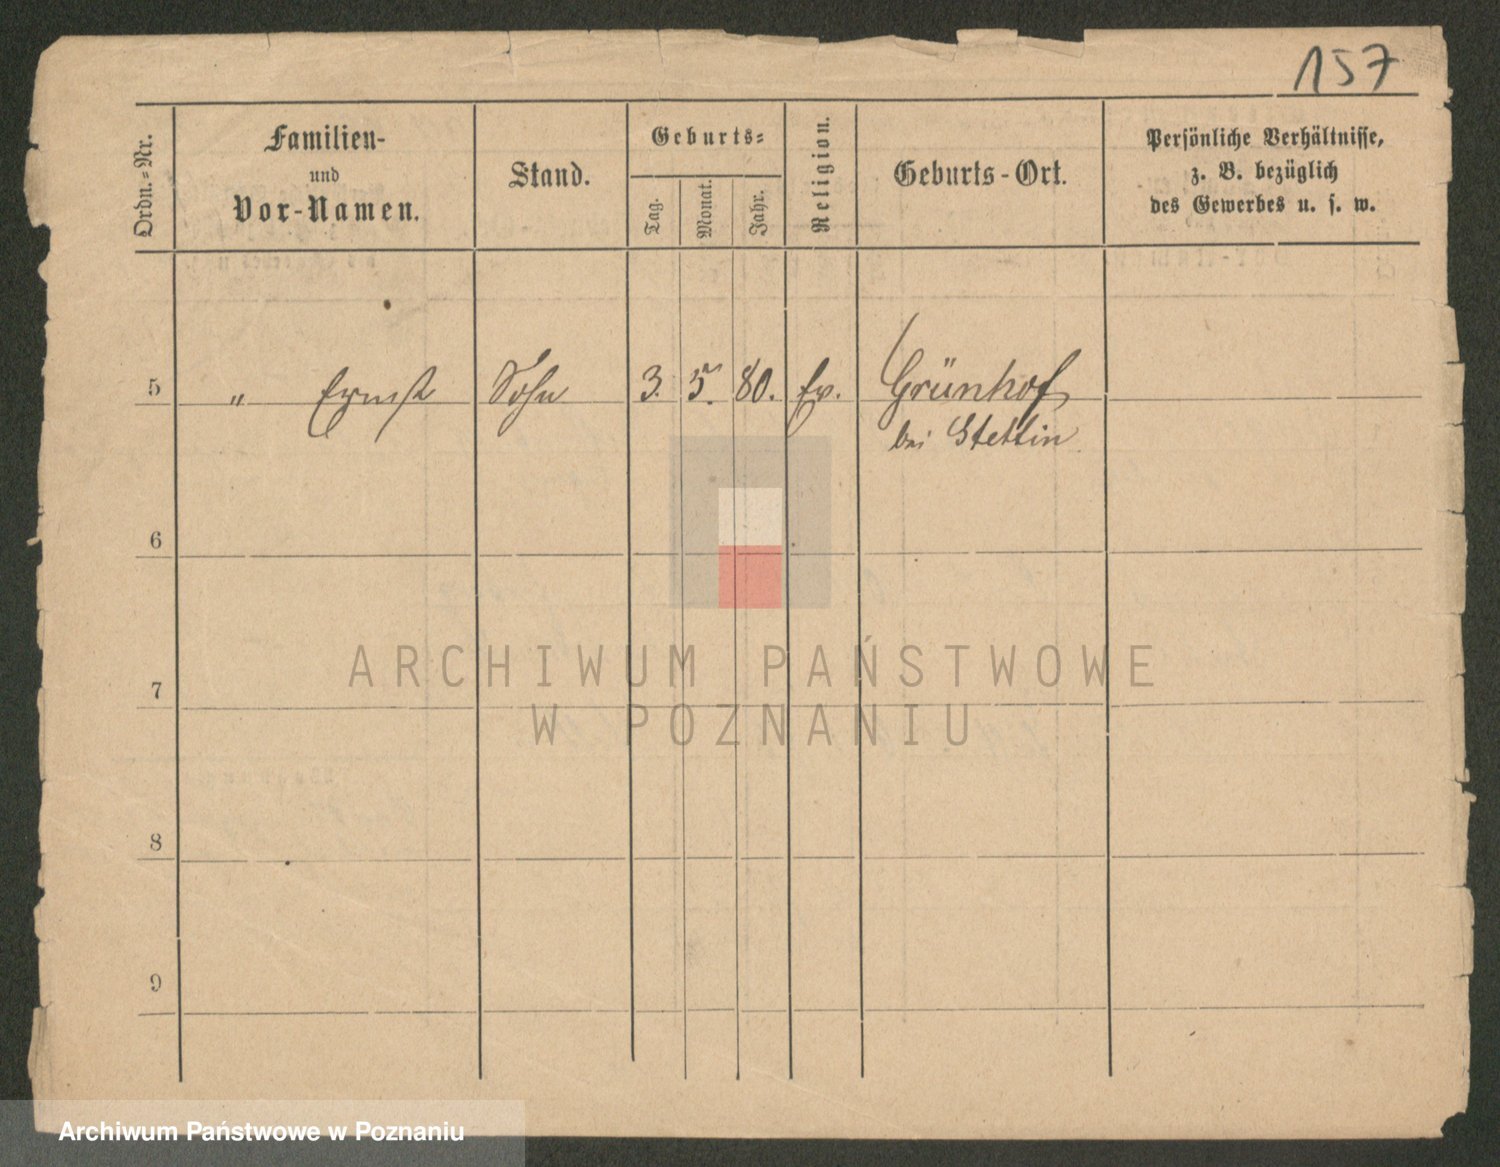 157
Ordn.-Nr.
Familien-
und
Vor-Namen.
Stand.
Geburts-
Tag.
Monat.
Jahr.
Religion.
Geburts-Ort.
Persönliche Verhältnisse,
z. B. bezüglich
des Gewerbes u. s. w.
5 " Ernst Sohn 3. 5. 80. Ev. Grünhof
bei Stettin
6
7
8
9
ARCHIWUM PAŃSTWOWE
W POZNANIU
Archiwum Państwowe w Poznaniu